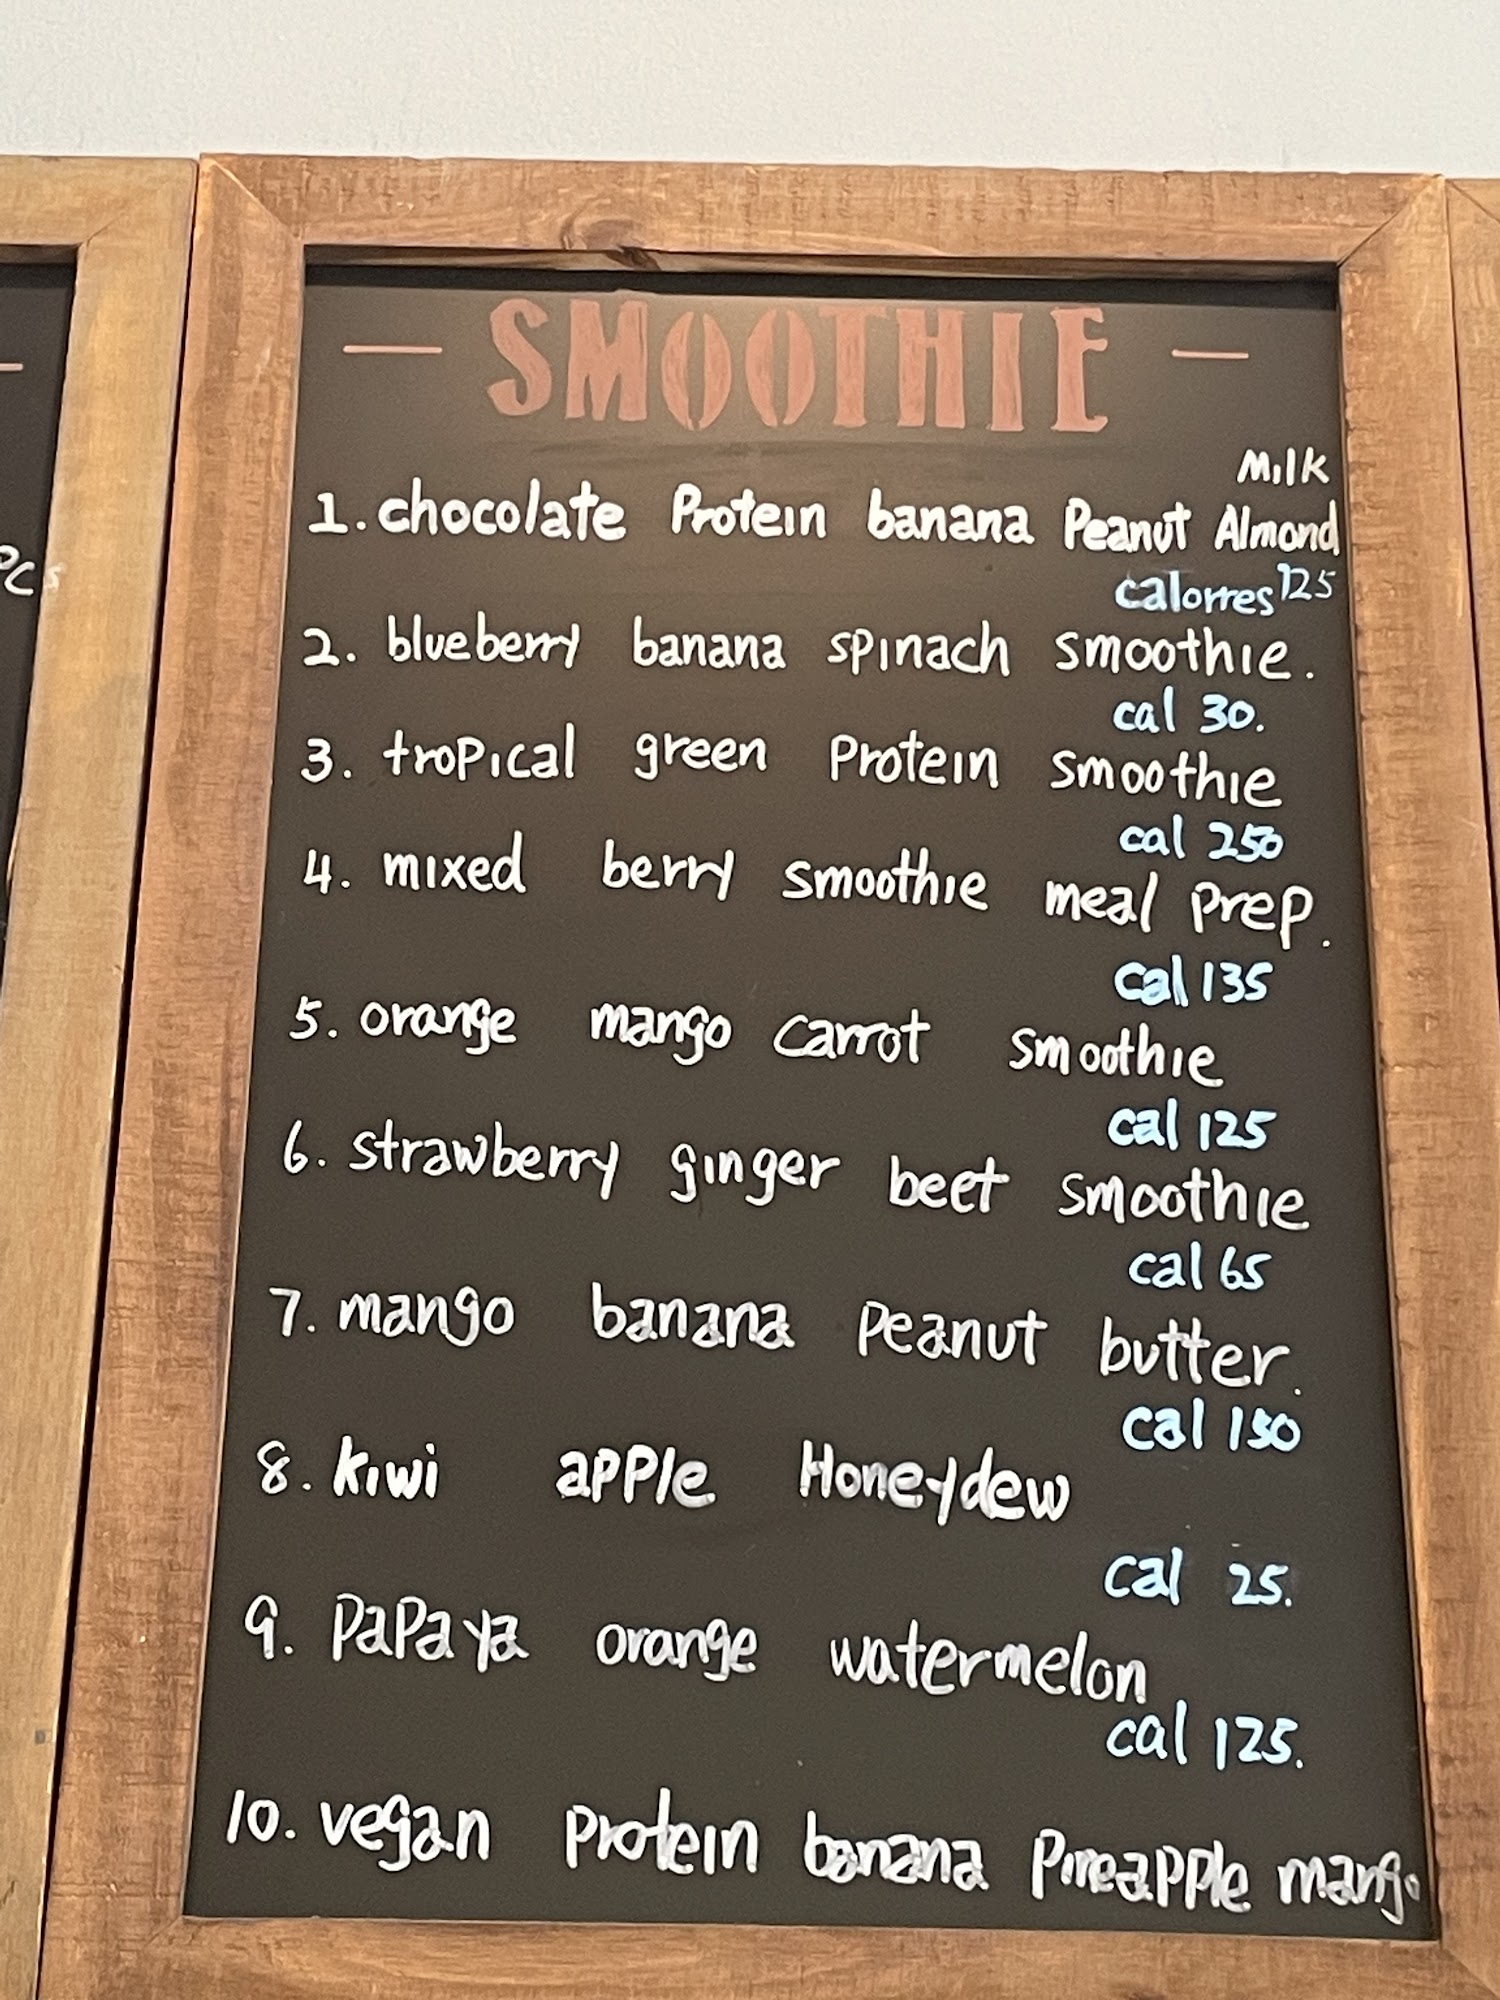 SMOOTHIE
Milk
1. chocolate Protein banana Peanut Almond
calorres 125
2. blueberry banana spinach smoothie.
cal 30.
3. tropical green Protein smoothie
cal 250
4. mixed berry smoothie meal prep.
cal 135
5. orange mango carrot smoothie
cal 125
6. strawberry ginger beet smoothie
cal 65
7. mango banana peanut butter.
cal 150
8. kiwi apple Honeydew
cal 25.
9. papaya orange watermelon
cal 125.
10. vegan Protein banana Pineapple mango